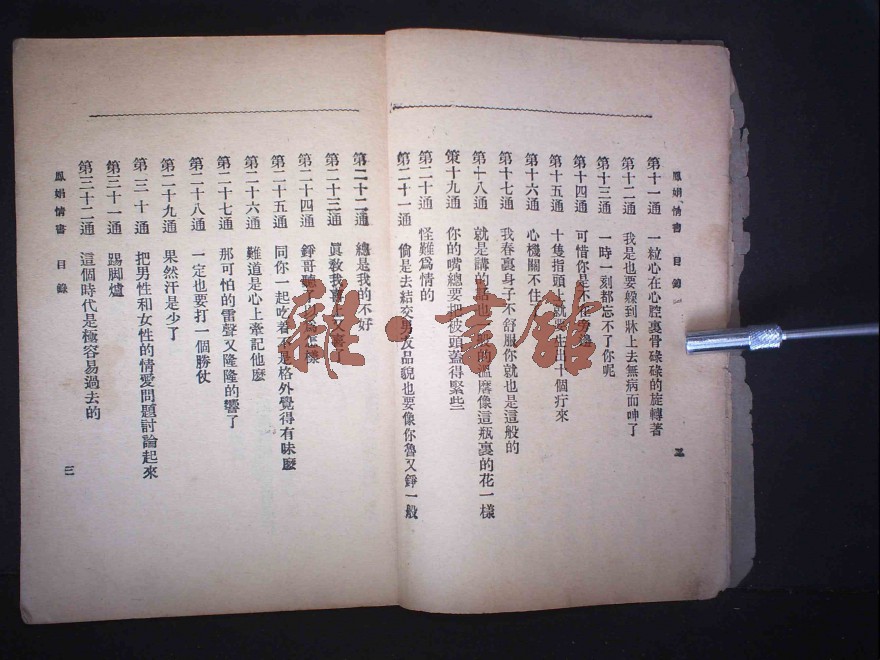 鳳娟情書 目錄 二
第十一通 一粒心在心腔裏骨碌碌的旋轉著
第十二通 我是也要躱到牀上去無病而呻了
第十三通 一時一刻都忘不了你呢
第十四通 可惜你是不在旁
第十五通 十隻指頭上就要生出十個疔來
第十六通 心機關不住
第十七通 我春裏身子不舒服你就也是這般的
第十八通 就是講的話也一 的溫麐像這瓶裏的花一樣
第十九通 你的嘴總要把被頭蓋得緊些
第二十通 怪難爲情的
第二十一通 倫是去結交男友品貌也要像你魯又錚一般
第二十二通 總是我的不好
第二十三通 眞敎我喜上又喜了
第二十四通 錚哥聽了以爲怎樣
第二十五通 同你一起吃着不是格外覺得有味麽
第二十六通 難道是心上牽記他麽
第二十七通 那可怕的雷聲又隆隆的響了
第二十八通 一定也要打一個勝仗
第二十九通 果然汗是少了
第三十通 把男性和女性的情愛問題討論起來
第三十一通 踢脚爐
第三十二通 這個時代是極容易過去的
鳳娟情書 目錄 三
雜·書館